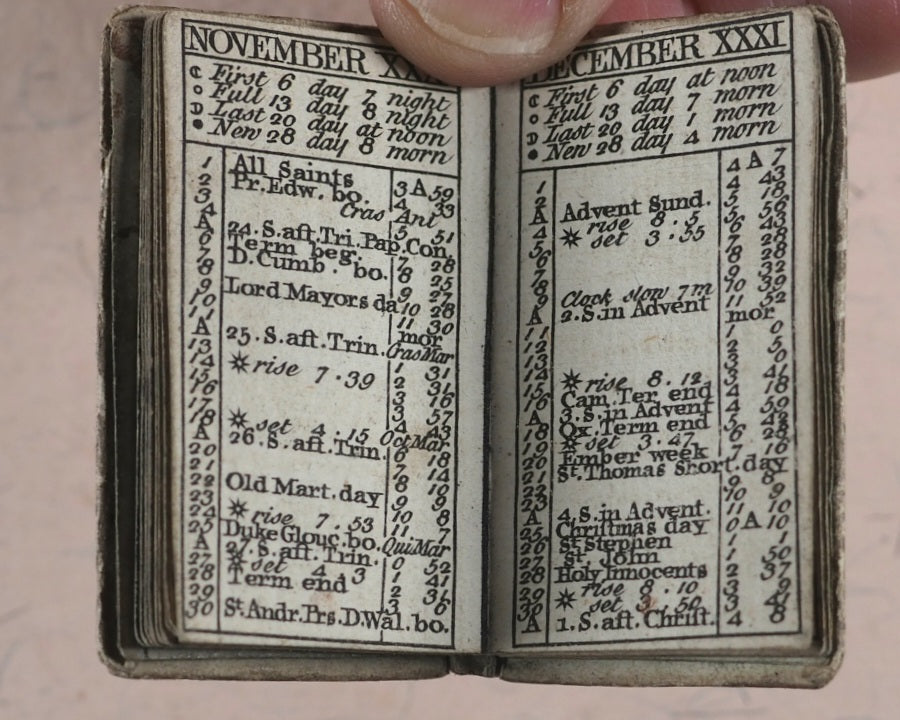 NOVEMBER XX
☾ First 6 day 7 night
○ Full 13 day 8 night
D Last 20 day at noon
● New 28 day 8 morn
1 All Saints 3 A 59
2 Pr. Edw. bo. 4 33
3 Cras Ani
A 24. S. aft. Tri. Pap. Con. 5 51
6 Term beg. 7 28
7 D. Cumb. bo. 8 25
8 9 27
9 Lord Mayors da 10 28
10 11 30
11 mor
A 25. S. aft. Trin. Cras Mar
13 1 31
14 ☀ rise 7.39 2 31
15 3 16
16 3 57
17 4 43
18 ☀ set 4.15 Oct Mar
A 26. S. aft. Trin. 6 18
20 7 14
21 8 10
22 Old Mart. day 9 9
23 10 8
24 ☀ rise 7.53 11 7
25 Duke Glouc. bo. Qui Mar
A 27. S. aft. Trin. 0 52
27 ☀ set 4 3 1 41
28 Term end 2 31
29 3 6
30 St. Andr. Prs. D. Wal. bo.
DECEMBER XXXI
☾ First 6 day at noon
○ Full 13 day 7 morn
D Last 20 day 1 morn
● New 28 day 4 morn
1 4 A 7
2 4 43
A Advent Sund. 5 18
4 ☀ rise 8.5 5 56
5 ☀ set 3.55 6 43
6 7 28
7 8 28
8 9 32
9 Clock slow 7 m 10 39
A 2. S. in Advent 11 52
11 mor
12 1 0
13 2 5
14 ☀ rise 8.12 3 0
15 Cam. Ter. end 3 41
16 3. S. in Advent 4 18
A Ox. Term end 4 59
18 ☀ set 3.47 5 42
19 Ember week 6 28
20 St. Thomas Short. day 7 16
21 9 8
22 10 9
23 11 10
A 4. S. in Advent.
25 Christmas day 0 A 10
26 St. Stephen 1 1
27 St. John 1 50
28 Holy Innocents 2 37
29 ☀ rise 8.10 3 9
30 ☀ set 3.50 3 41
A 1. S. aft. Christ. 4 8